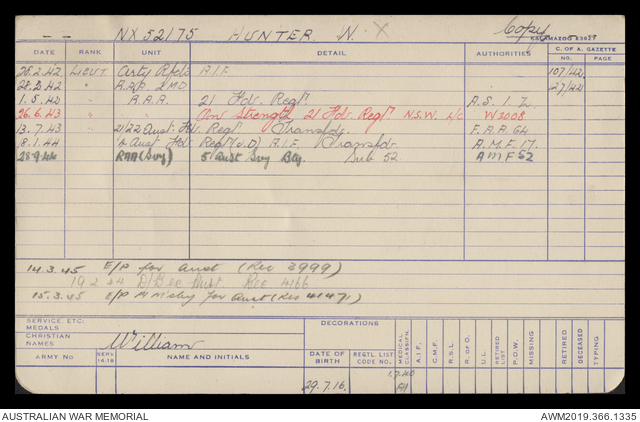 -- NX 52175 HUNTER. W. X Copy
KALAMAZOO 83027
DATE RANK UNIT DETAIL AUTHORITIES C. OF A. GAZETTE
NO. PAGE
26.2.42 LIEUT. Arty A.I.F. 107/42
28.2.42 " A.A.A 2 MD 27/42
1.5.42 " A.A.A. 21 Fdr. Regt. A.S. 12
26.6.43 " " On Strength 21 Fdr. Regt. N.S.W. L/C W2008
13.7.43 2/22 Aust. Fdr. Regt. Transfd. F.A.A. 64
8.1.44 Aust Fdr. Regt A.I.F. (Transfd. A.M.F. 17.
28.9.44 RAA (Svy) 5 Aust Svy Bty. Sub 52 AMF 52
14.3.45 E/P for Aust (Rec 3999)
19.2.44 Aust Rec 4166
15.3.45 E/P for Aust (Rec 4147)
SERVICE, ETC: MEDALS
DECORATIONS
CHRISTIAN NAMES William
ARMY No SERV. 14-18 NAME AND INITIALS DATE OF BIRTH REGTL. LIST CODE NO. MEDICAL CLASSIFN. A.I.F. C.M.F. R.S.L. R. of O. U.L. RETIRED LIST P.O.W. MISSING RETIRED DECEASED TYPING
29.7.16. 1.7.40
A1
AUSTRALIAN WAR MEMORIAL AWM2019.366.1335